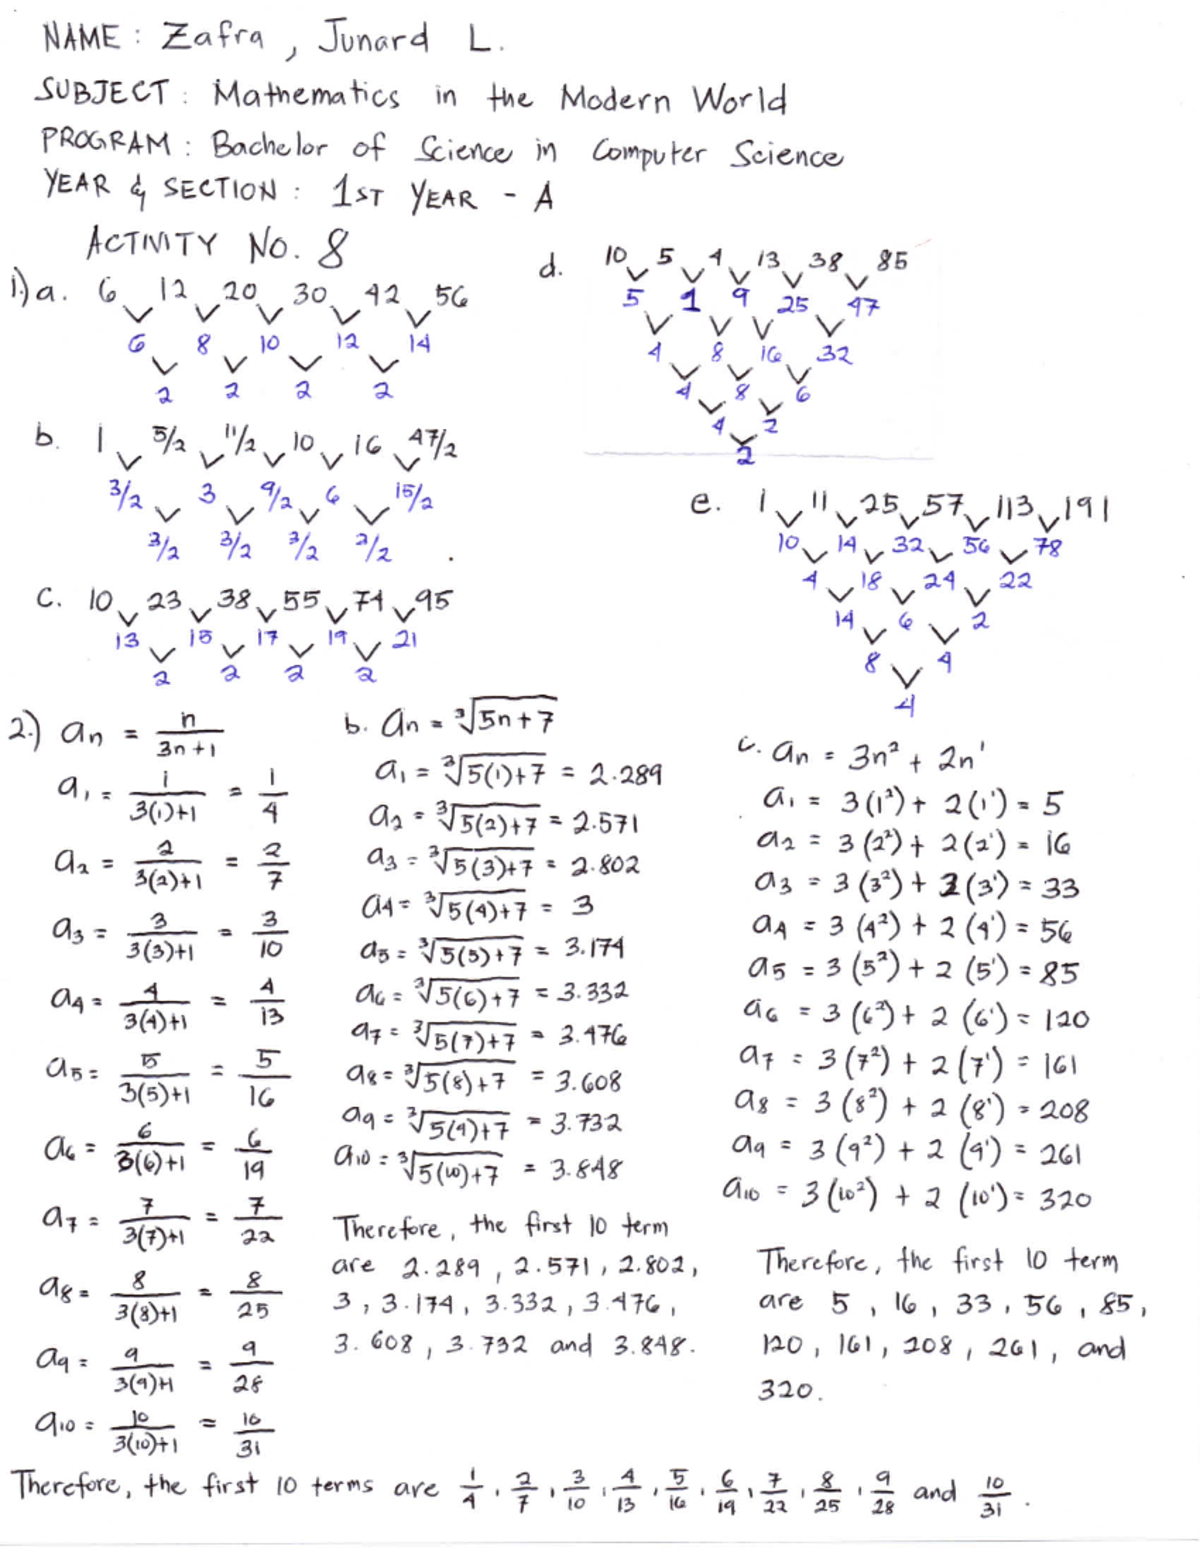 NAME : Zafra , Junard L.
SUBJECT : Mathematics in the Modern World
PROGRAM : Bachelor of Science in Computer Science
YEAR & SECTION : 1ST YEAR - A
ACTIVITY No. 8
1.) a. 6 12 20 30 42 56
6 8 10 12 14
2 2 2 2
b. 1 5/2 11/2 10 16 47/2
3/2 3 9/2 6 15/2
3/2 3/2 3/2 3/2 .
c. 10 23 38 55 74 95
13 15 17 19 21
2 2 2 2
d. 10 5 4 13 38 85
5 1 9 25 47
4 8 16 32
4 8 6
4 2
2
e. 1 11 25 57 113 191
10 14 32 56 78
4 18 24 22
14 6 2
8 4
4
2.) an = n/3n+1
a1 = 1/3(1)+1 = 1/4
a2 = 2/3(2)+1 = 2/7
a3 = 3/3(3)+1 = 3/10
a4 = 4/3(4)+1 = 4/13
a5 = 5/3(5)+1 = 5/16
a6 = 6/3(6)+1 = 6/19
a7 = 7/3(7)+1 = 7/22
a8 = 8/3(8)+1 = 8/25
a9 = 9/3(9)+1 = 9/28
a10 = 10/3(10)+1 = 10/31
b. an = ∛5n+7
a1 = ∛5(1)+7 = 2.289
a2 = ∛5(2)+7 = 2.571
a3 = ∛5(3)+7 = 2.802
a4 = ∛5(4)+7 = 3
a5 = ∛5(5)+7 = 3.174
a6 = ∛5(6)+7 = 3.332
a7 = ∛5(7)+7 = 3.476
a8 = ∛5(8)+7 = 3.608
a9 = ∛5(9)+7 = 3.732
a10 = ∛5(10)+7 = 3.848
Therefore, the first 10 term
are 2.289, 2.571, 2.802,
3, 3.174, 3.332, 3.476,
3.608, 3.732 and 3.848.
c. an = 3n² + 2n¹
a1 = 3(1²) + 2(1¹) = 5
a2 = 3(2²) + 2(2¹) = 16
a3 = 3(3²) + 2(3¹) = 33
a4 = 3(4²) + 2(4¹) = 56
a5 = 3(5²) + 2(5¹) = 85
a6 = 3(6²) + 2(6¹) = 120
a7 = 3(7²) + 2(7¹) = 161
a8 = 3(8²) + 2(8¹) = 208
a9 = 3(9²) + 2(9¹) = 261
a10 = 3(10²) + 2(10¹) = 320
Therefore, the first 10 term
are 5, 16, 33, 56, 85,
120, 161, 208, 261, and
320.
Therefore, the first 10 terms are 1/4, 2/7, 3/10, 4/13, 5/16, 6/19, 7/22, 8/25, 9/28 and 10/31.